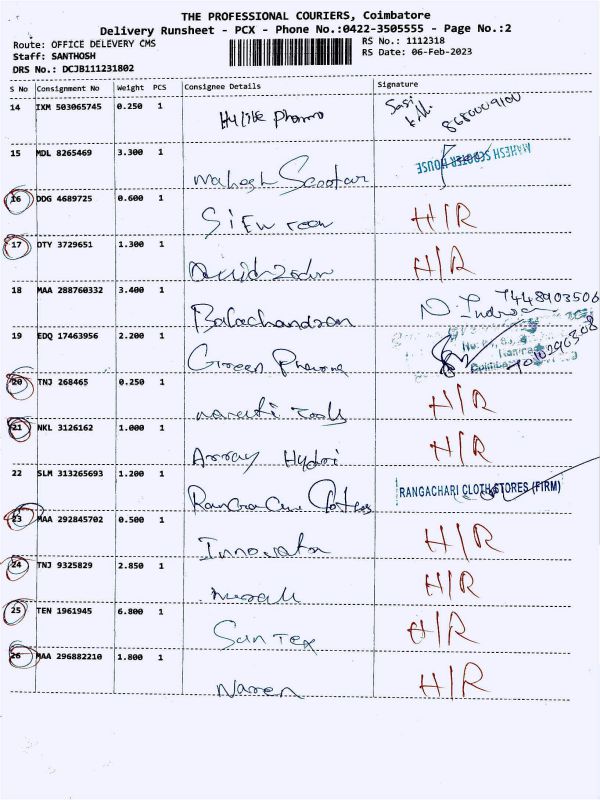 THE PROFESSIONAL COURIERS, Coimbatore
Delivery Runsheet - PCX - Phone No.:0422-3505555 - Page No.:2
Route: OFFICE DELEVERY CMS
RS No.: 1112318
Staff: SANTHOSH
RS Date: 06-Feb-2023
DRS No.: DCJB111231802
S No Consignment No Weight PCS Consignee Details Signature
14 IXM 503065745 0.250 1 Sasi
8680009100
15 MDL 8265469 3.300 1 MAHESH SCOOTER HOUSE
Mahesh Scooter
16 DDG 4689725 0.600 1 H/R
17 DTY 3729651 1.300 1 H/R
18 MAA 288760332 3.400 1 7448903506
Balachandran
19 EDQ 17463956 2.200 1
Green Pharma
20 TNJ 268465 0.250 1 H/R
21 NKL 3126162 1.000 1 H/R
Array Hydri
22 SLM 313265693 1.200 1 RANGACHARI CLOTH STORES (FIRM)
23 MAA 292845702 0.500 1 H/R
24 TNJ 9325829 2.850 1 H/R
25 TEN 1961945 6.800 1 H/R
Suntex
26 MAA 296882210 1.800 1 H/R
Naren